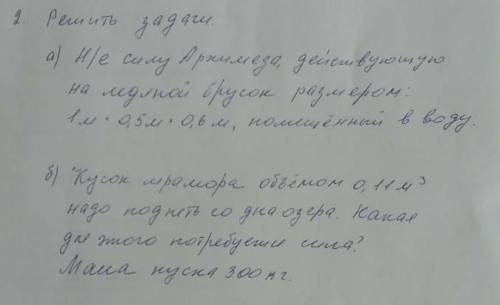 2. Решить задачи.
а) Н/е силу Архимеда, действующую
на ледяной брусок размером:
1м · 0,5м · 0,6м, помещённый в воду.
б) Кусок мрамора объёмом 0,11м³
надо поднять со дна озера. Какая
для этого потребуется сила?
Масса куска 300кг.